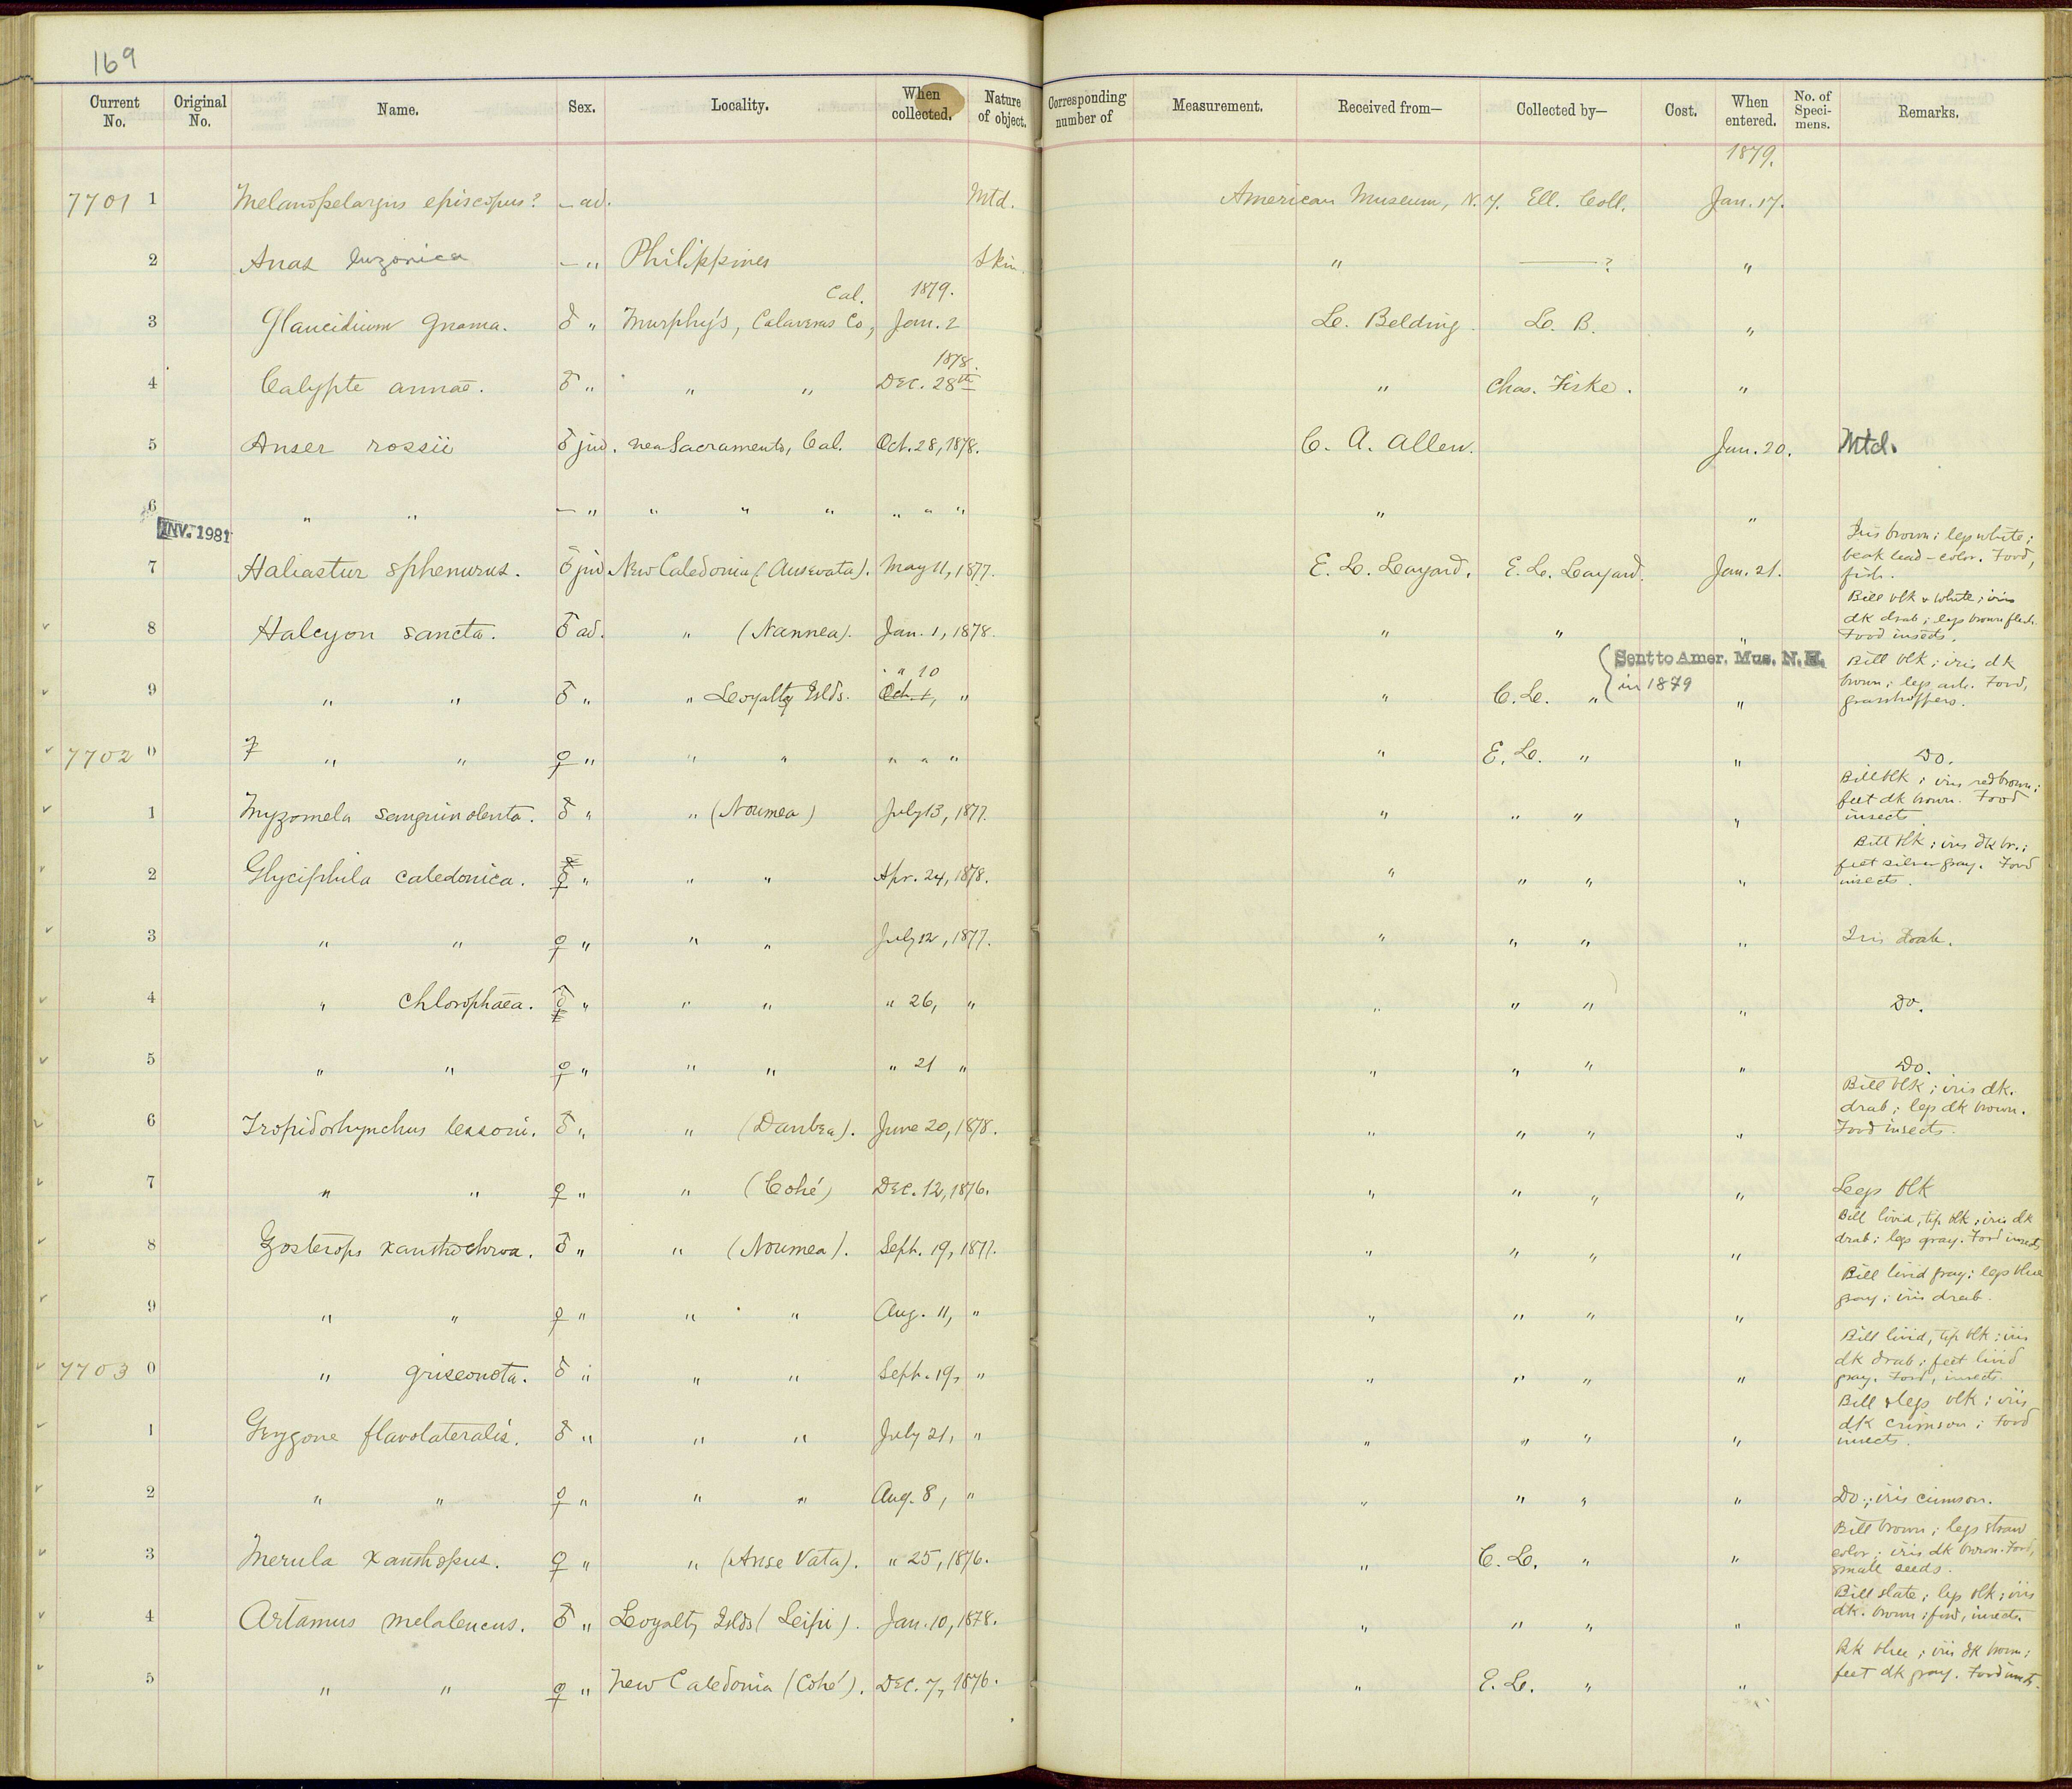 169
Current No. Original No. Name. Sex. Locality. When collected. Nature of object. Corresponding number of Measurement. Received from— Collected by— Cost. When entered. No. of Specimens. Remarks.
1879.
7701 1 Melanopelargus episcopus? — ad. Mtd. American Museum, N.Y. Ell. Coll. Jan. 17.
2 Anas luzonica — " Philippines Skin. " —— ? "
Cal. 1879.
3 Glaucidium gnoma. ♂ " Murphy's, Calaveras Co., Jan. 2 L. Belding. L. B. "
1878.
4 Calypte annae. ♂ " " " Dec. 28th " Chas. Fiske. "
5 Anser rossii ♂ juv. near Sacramento, Cal. Oct. 28, 1878. C. A. Allen. Jan. 20. Mtd.
6 " " — " " " " " " " " "
INV. 1981
Iris brown; legs white;
beak lead-color. Food,
7 Haliastur sphenurus. ♂ juv New Caledonia (Ansevata). May 11, 1877. E. L. Layard. E. L. Layard. Jan. 21. fish.
Bill blk & white; iris
dk drab; legs brown flesh.
8 Halcyon sancta. ♂ ad. " (Nannea). Jan. 1, 1878. " " " Food insects.
Sent to Amer. Mus. N. H.
in 1879
Bill blk; iris dk
brown; legs ash. Food,
" 10
9 " " ♂ " " Loyalty Islds. Oct. 1, " " C. L. " " grasshoppers.
7702 0 ♀ " " ♀ " " " " " " " E. L. " " Do.
Bill blk; iris red brown;
feet dk brown. Food
1 Myzomela sanguinolenta. ♂ " " (Noumea) July 13, 1877. " " " " insects
Bill blk; iris dk br.;
feet silver gray. Food
2 Glyciphila caledonica. ♀ " " " Apr. 24, 1878. " " " " insects.
3 " " ♀ " " " July 12, 1877. " " " " Iris drab.
4 " chlorophaea. ♂ " " " " 26, " " " " " Do.
5 " " ♀ " " " " 21 " " " " " Do.
Bill blk; iris dk.
drab; legs dk brown.
6 Tropidorhynchus lessoni. ♂ " " (Danbea). June 20, 1878. " " " " Food insects.
7 " " ♀ " " (Cohé) Dec. 12, 1876. " " " " Legs blk
Bill livid, tip blk; iris dk
8 Zosterops xanthochroa. ♂ " " (Noumea). Sept. 19, 1877. " " " " drab; legs gray. Food insects
Bill livid gray; legs blue
9 " " ♀ " " " Aug. 11, " " " " " gray; iris drab.
Bill livid, tip blk; iris
dk drab; feet livid
7703 0 " griseonota. ♂ " " " Sept. 19, " " " " " gray. Food, insects.
Bill & legs blk; iris
dk crimson; Food
1 Gerygone flavolateralis. ♂ " " " July 21, " " " " " insects.
2 " " ♀ " " " Aug. 8, " " " " " Do.; iris crimson.
Bill brown; legs straw
color; iris dk brown. Food,
3 Merula xanthopus. ♀ " " (Anse Vata). " 25, 1876. " C. L. " " small seeds.
Bill slate; legs blk; iris
4 Artamus melaleucus. ♂ " Loyalty Islds (Leifu). Jan. 10, 1878. " " " " dk. brown; food, insects.
Bk blue; iris dk brown;
5 " " ♀ " New Caledonia (Cohé). Dec. 7, 1876. " E. L. " " feet dk gray. Food insects.